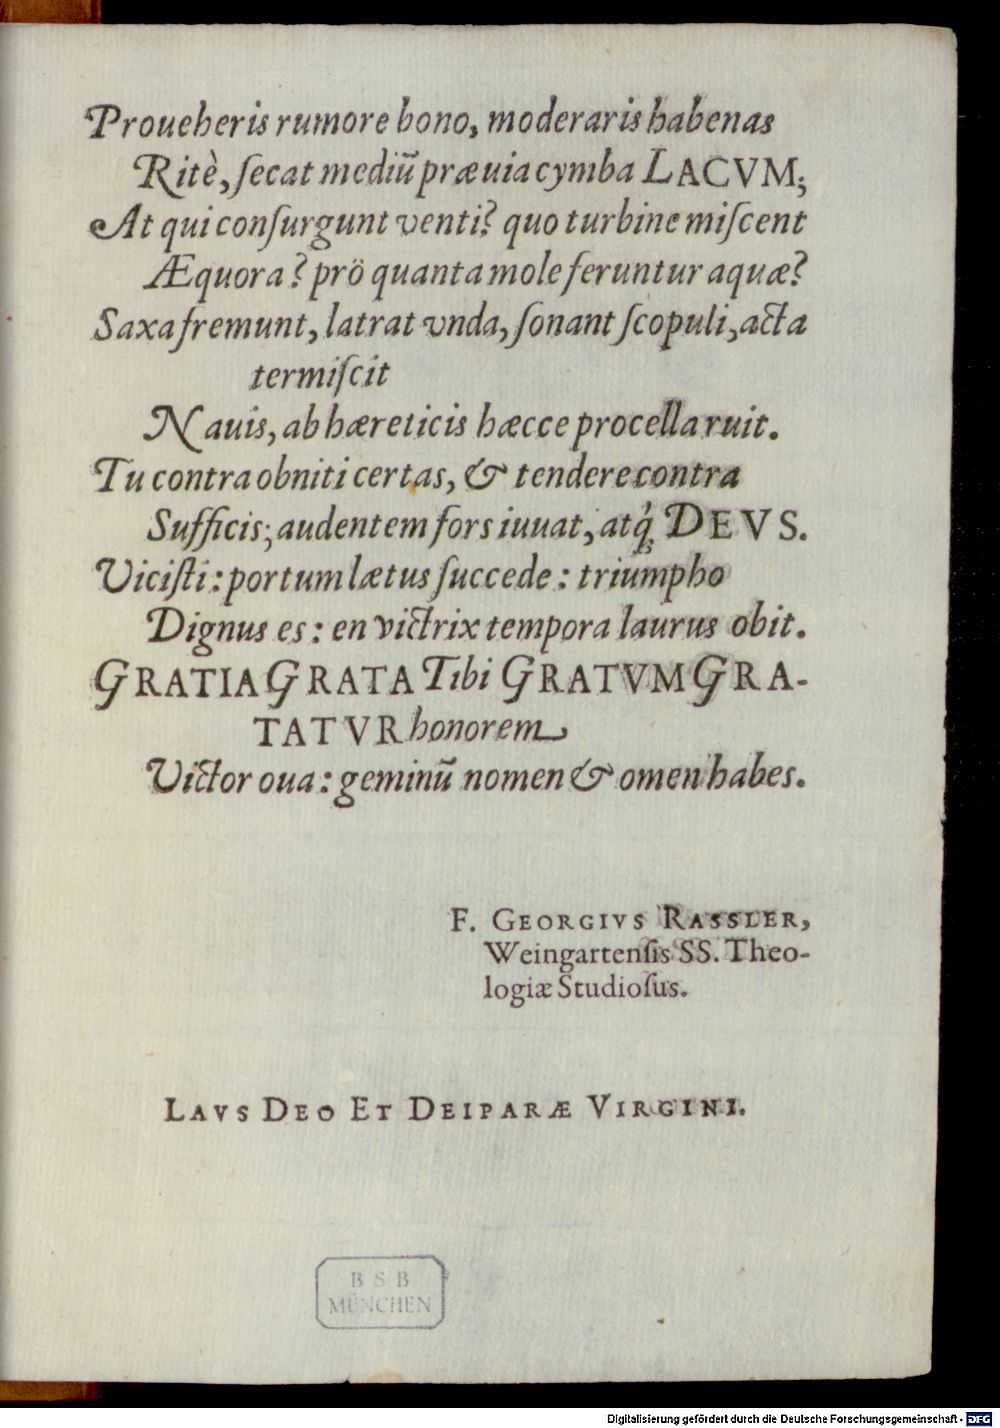 Proueheris rumore bono, moderaris habenas
Ritè, ſecat mediũ præuia cymba LACVM;
At qui conſurgunt venti? quo turbine miſcent
Æquora? prö quanta mole feruntur aquæ?
Saxa fremunt, latrat vnda, ſonant ſcopuli, acta
termiſcit
Nauis, ab hæreticis hæcce procella ruit.
Tu contra obniti certas, & tendere contra
Sufficis; audentem fors iuuat, atq́; DEVS.
Viciſti: portum lætus ſuccede: triumpho
Dignus es: en victrix tempora laurus obit.
GRATIA GRATA Tibi GRATVM GRA-
TATVR honorem
Victor oua: geminũ nomen & omen habes.
F. GEORGIVS RASSLER,
Weingartenſis SS. Theo-
logiæ Studioſus.
LAVS DEO ET DEIPARÆ VIRGINI.
BSB
MÜNCHEN
Digitalisierung gefördert durch die Deutsche Forschungsgemeinschaft - DFG